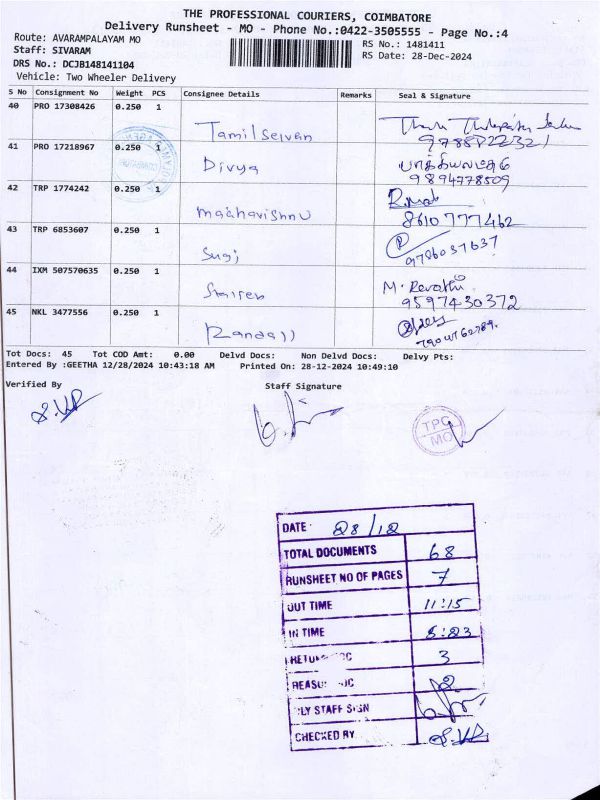 THE PROFESSIONAL COURIERS, COIMBATORE
Delivery Runsheet - MO - Phone No.:0422-3505555 - Page No.:4
Route: AVARAMPALAYAM MO
RS No.: 1481411
Staff: SIVARAM
RS Date: 28-Dec-2024
DRS No.: DCJB148141104
Vehicle: Two Wheeler Delivery
S No Consignment No Weight PCS Consignee Details Remarks Seal & Signature
40 PRO 17308426 0.250 1
Tamilselvan
9785822321
41 PRO 17218967 0.250 1
Divya
9894778509
42 TRP 1774242 0.250 1
madhavishnu
8610777462
43 TRP 6853607 0.250 1
Suji
9786037637
44 IXM 507570635 0.250 1
M. Revathi
9597430372
45 NKL 3477556 0.250 1
Tot Docs: 45 Tot COD Amt: 0.00 Delvd Docs: Non Delvd Docs: Delvy Pts:
Entered By :GEETHA 12/28/2024 10:43:18 AM Printed On: 28-12-2024 10:49:10
Verified By Staff Signature
TPC
MO
DATE 28/12
TOTAL DOCUMENTS 68
RUNSHEET NO OF PAGES 7
OUT TIME 11:15
IN TIME 5:23
3
2
STAFF SIGN
CHECKED BY